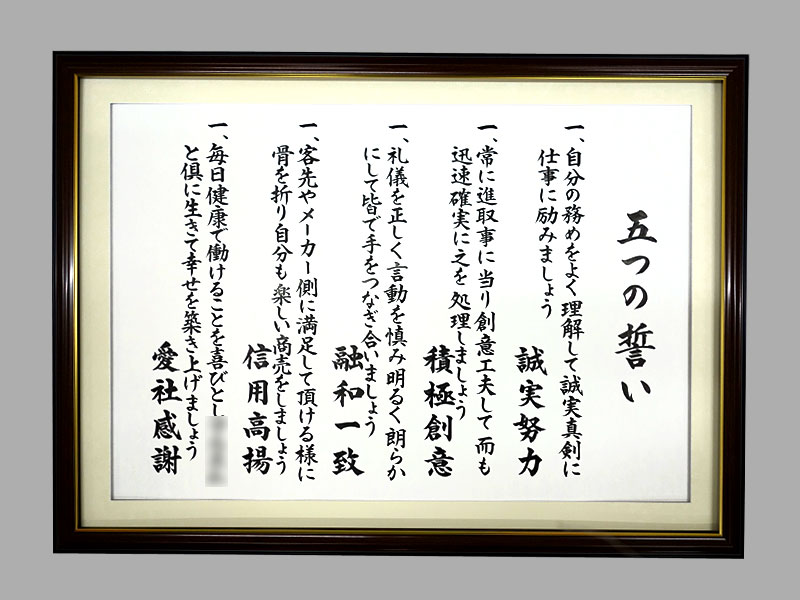 五つの誓い
一、自分の務めをよく理解して誠実真剣に
仕事に励みましょう
誠実努力
一、常に進取事に当り創意工夫して而も
迅速確実に之を処理しましょう
積極創意
一、礼儀を正しく言動を慎み明るく朗らか
にして皆で手をつなぎ合いましょう
融和一致
一、客先やメーカー側に満足して頂ける様に
骨を折り自分も楽しい商売をしましょう
信用高揚
一、毎日健康で働けることを喜びとし
と倶に生きて幸せを築き上げましょう
愛社感謝